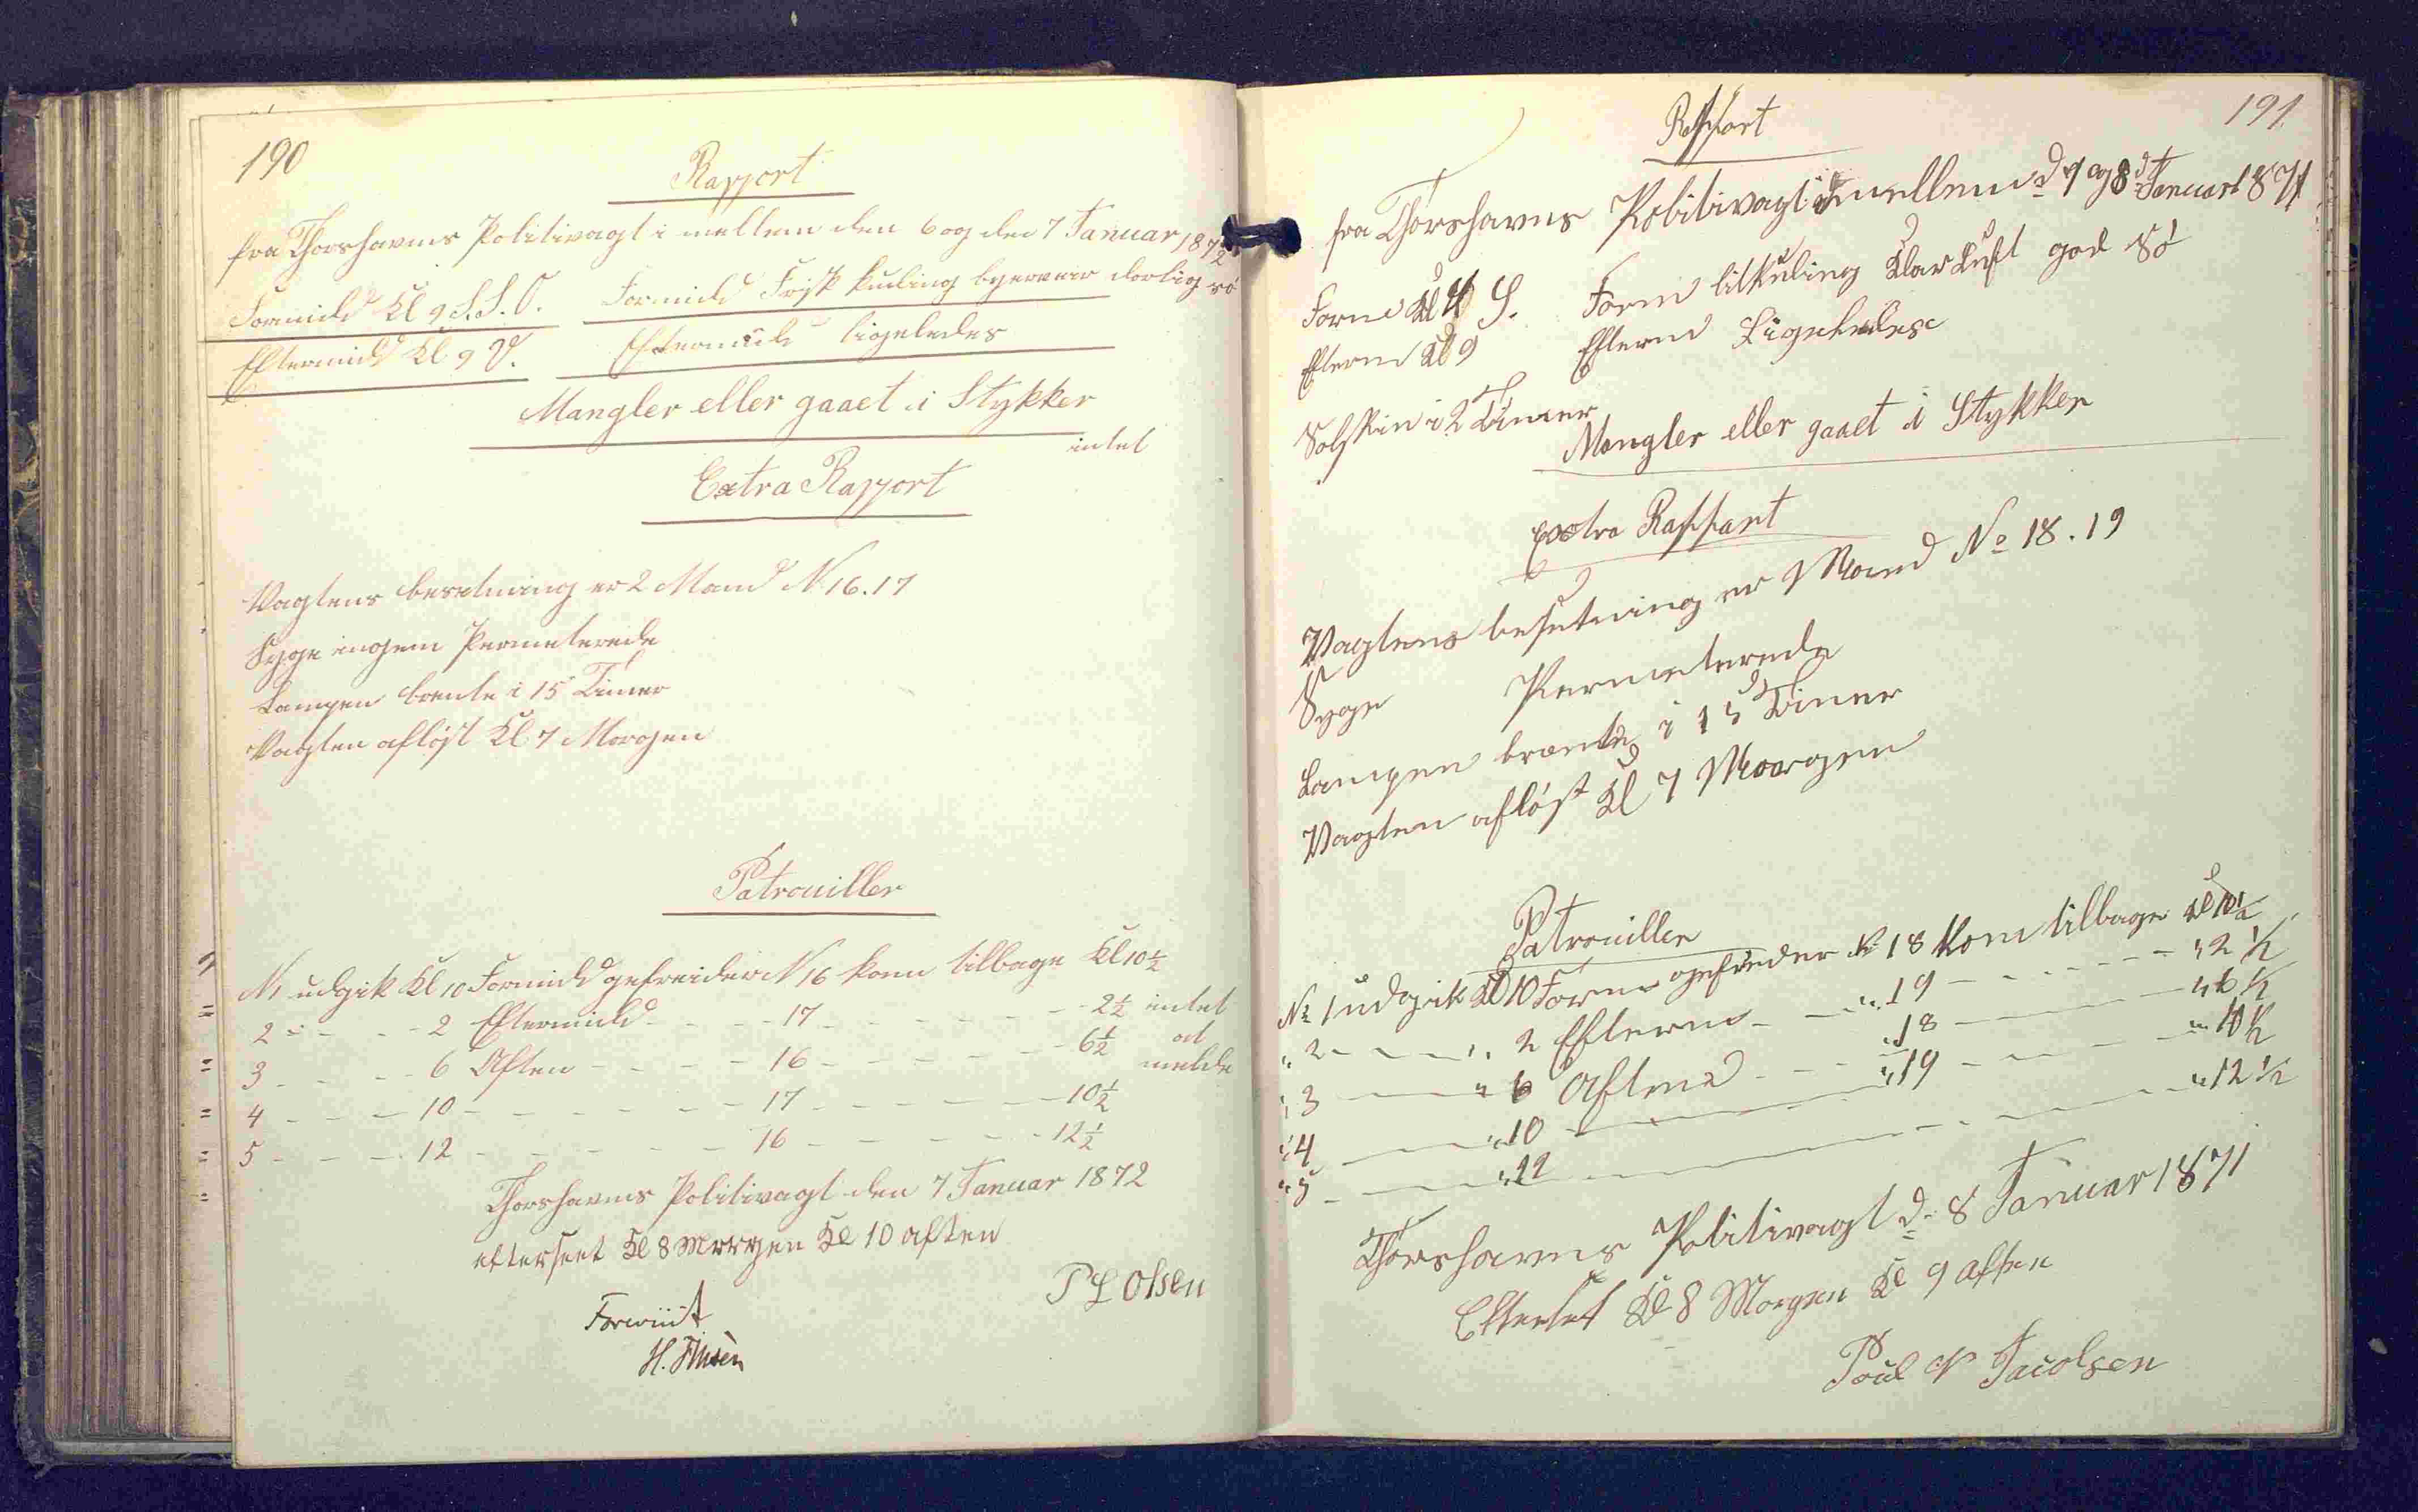 190
Rapport
fra Thorshavns Politivagt i mellem den 6 og den 7 Januar 1872
Formidd Kl 9 S.S.O. Formidd Frisk kuling byerveir dorlig sö
Eftermidd Kl 9 V. Eftermidd ligeledes
Mangler eller gaaet i Stykker
intet
Extra Rapport
Vagtens besetning er 2 Mand N 16. 17
Syge ingen Permeterede
Lampen brente i 15 Timer
Vagten aflöst Kl 7 Morgen
Patrouiller
N1 udgik Kl 10 Formidd gefreider N 16 kom tilbage Kl 10½
2 - - - 2 Eftermidd - - - 17 - - - - - 2½ intet
3 - - - 6 Aften - - - 16 - - - - - 6½ at melde
4 - - - 10 - - - - - - 17 - - - - - 10½
5 - - - 12 - - - - - - 16 - - - - - 12½
Thorshavns Politivagt den 7 Januar 1872
efterseet Kl 8 Morgen Kl 10 aften
P L Olsen
H.
191
Rapport
fra Thorshavns Politivagt imellem d 7 og 8 d Januar 1871
Form Kl S. Form litkuling Klar Luft god Sö
Efterm Kl 9 Efterm Ligeledese
Solskin i 2 Timer
Mangler eller gaaet i Stykker
Extra Rappart
Vagtens besetning er Mand No 18. 19
Syge Permeterede
Lampen brænte i 15 Timer
Vagten aflöst Kl 7 Moorgen
Patrouiller
No 1 udgik Kl 10 Form gefreder N 18 kom tilbage Kl 10½
" 2 - - - " 2 Efterm - - " 19 - - - - - " 2½
" 3 - - - " 6 Aftend - - - " 18 - - - - " 6½
" 4 - - - " 10 - - - - " 19 - - - - " 10½
" 5 - - - " 12 - - - - - - - " 12½
Thorshavns Politivagt d. 8 Januar 1871
Efterset Kl 8 Morgen Kl 9 aften
Poul N Jacobsen